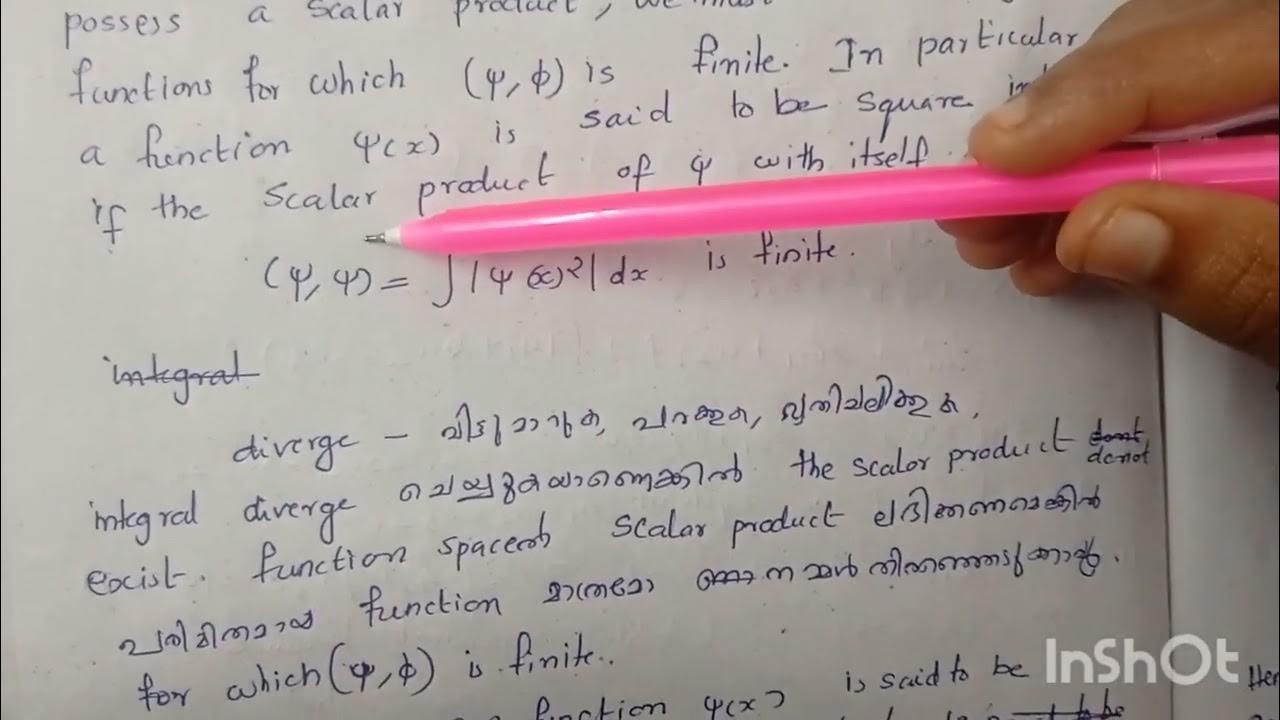 possess a scalar product, we must
functions for which (ψ, ϕ) is finite. In particular
a function ψ(x) is said to be square
if the scalar product of ψ with itself
(ψ, ψ) = ∫|ψ(x)²|dx is finite.
integral
diverge – വിട്ടുമാറുക, പരക്കുക, വ്യതിചലിക്കുക,
integral diverge ചെയ്യുകയാണെങ്കിൽ the scalor product dont do not
exist. function spaceൽ scalar product ലഭിക്കണമെങ്കിൽ
പരിമിതമായ function മാത്രമേ നമ്മൾ തിരഞ്ഞെടുക്കാവൂ.
for which (ψ, ϕ) is finite..
function ψ(x) is said to be
to be
InShOt